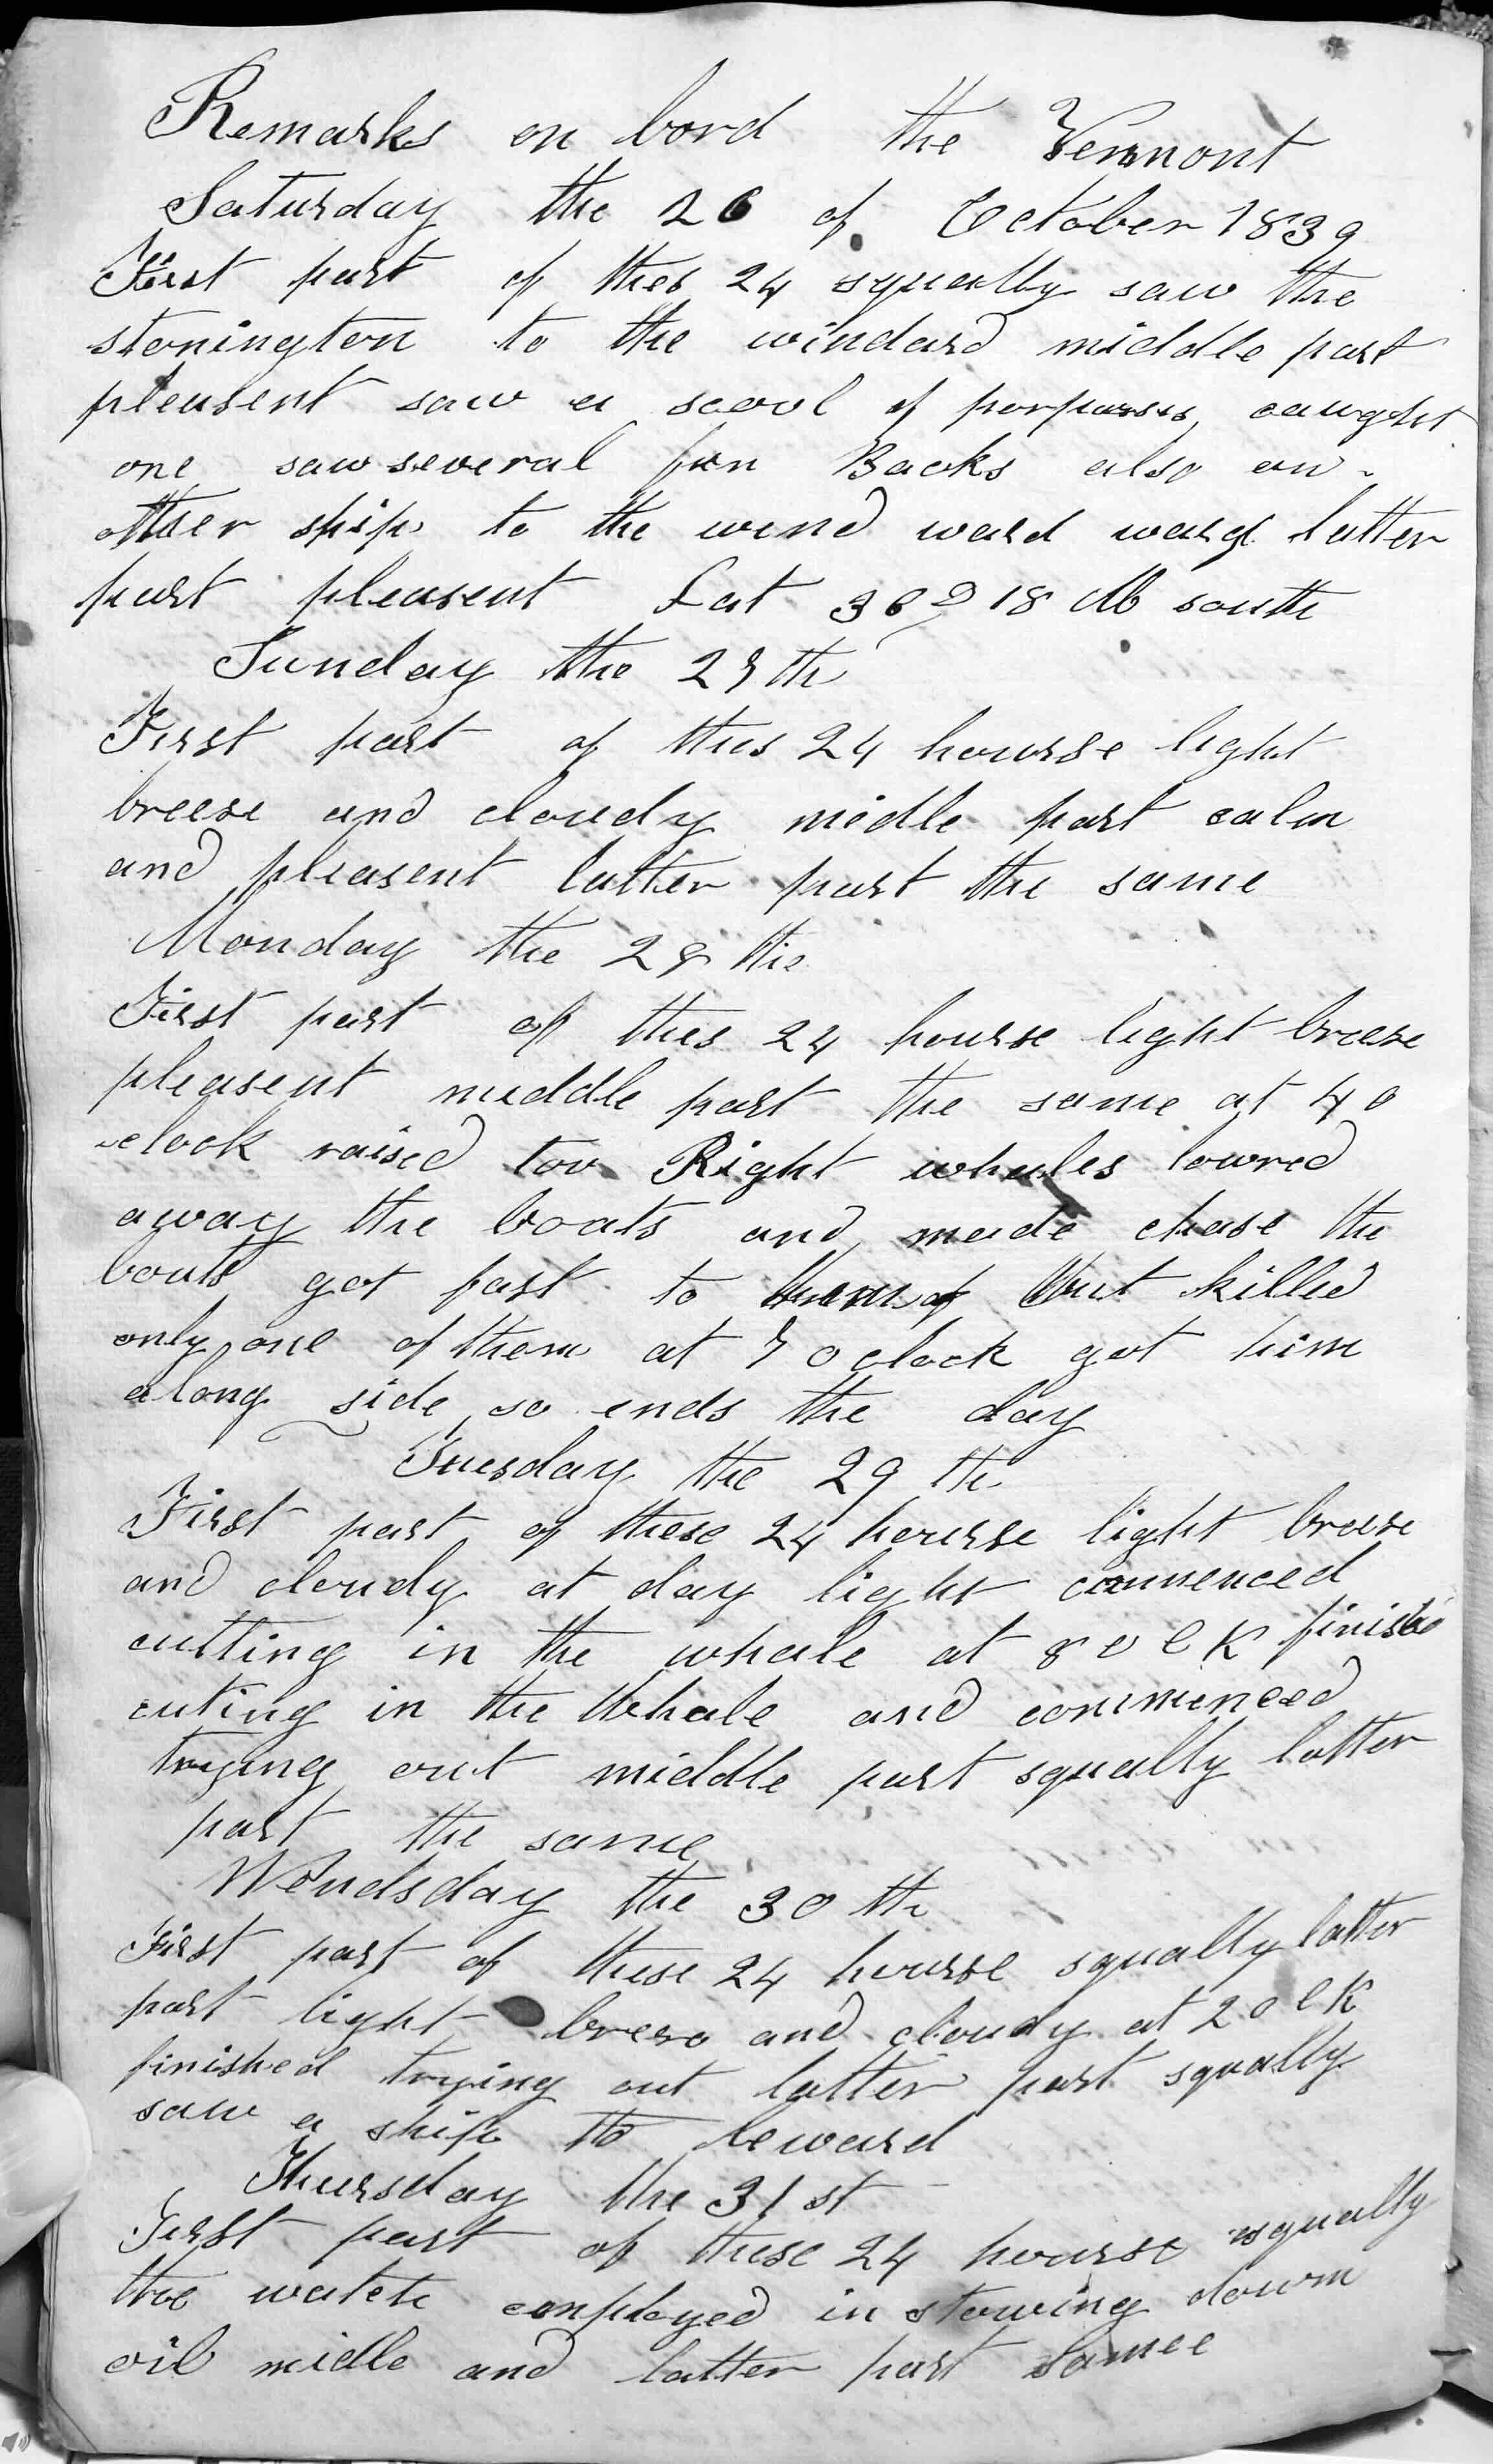 Remarks on bord the Vermont
Saturday the 26 of October 1839
First part of thes 24 squally saw the
stonington to the windard middle part
pleasent saw a scool of porpuses caught
one saw several fin Backs also an-
other ship to the wind ward ward latter
part pleasent Lat 36 D 18 M south
Sunday the 27 th
First part of thes 24 hourse light
breese and cloudy midle part calm
and pleasent latter part the same
Monday the 28 th
First part of thes 24 hourse light breese
pleasent middle part the same at 4 o
clock raised tow Right whales lowred
away the boats and made chase the
boats got fast to but killed
only one of them at 7 o clock got him
along side so ends the day
Tuesday the 29 th
First part of these 24 hourse light breese
and cloudy at day light commenced
cutting in the whale at 8 o c K finishd
cuting in the Whale and commenced
trying out middle part squally latter
part the same
Wendsday the 30 th
First part of these 24 hourse squally latter
part light brese and cloudy at 2 o c K
finished trying out latter part squally
saw a ship to leward
Thursday the 31 st
First part of these 24 hourse squally
the watch employed in stowing down
oil midle and latter part samee